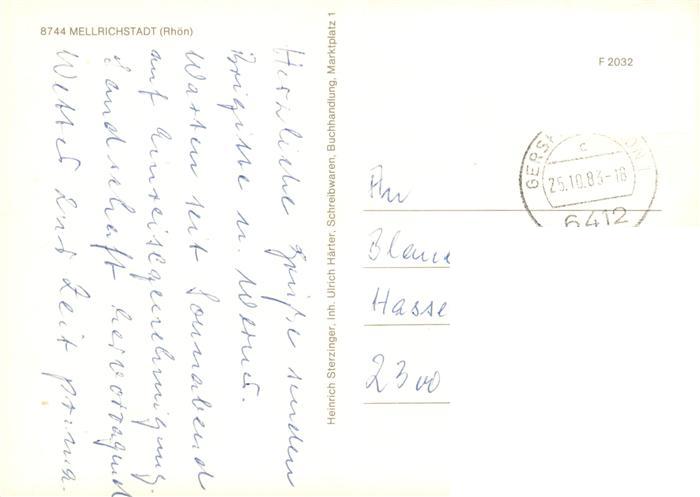 8744 MELLRICHSTADT (Rhön)
Herzliche Grüße senden
Brigitte u. Werner.
Warten seit Sonnabend
auf Einreisegenehmigung.
Landschaft hervorragend
Wetter zur Zeit prima.
Heinrich Sterzinger, Inh. Ulrich Härter, Schreibwaren, Buchhandlung, Marktplatz 1
F 2032
GERSF
25.10.83-18
c
6412
An
Hasse
2300